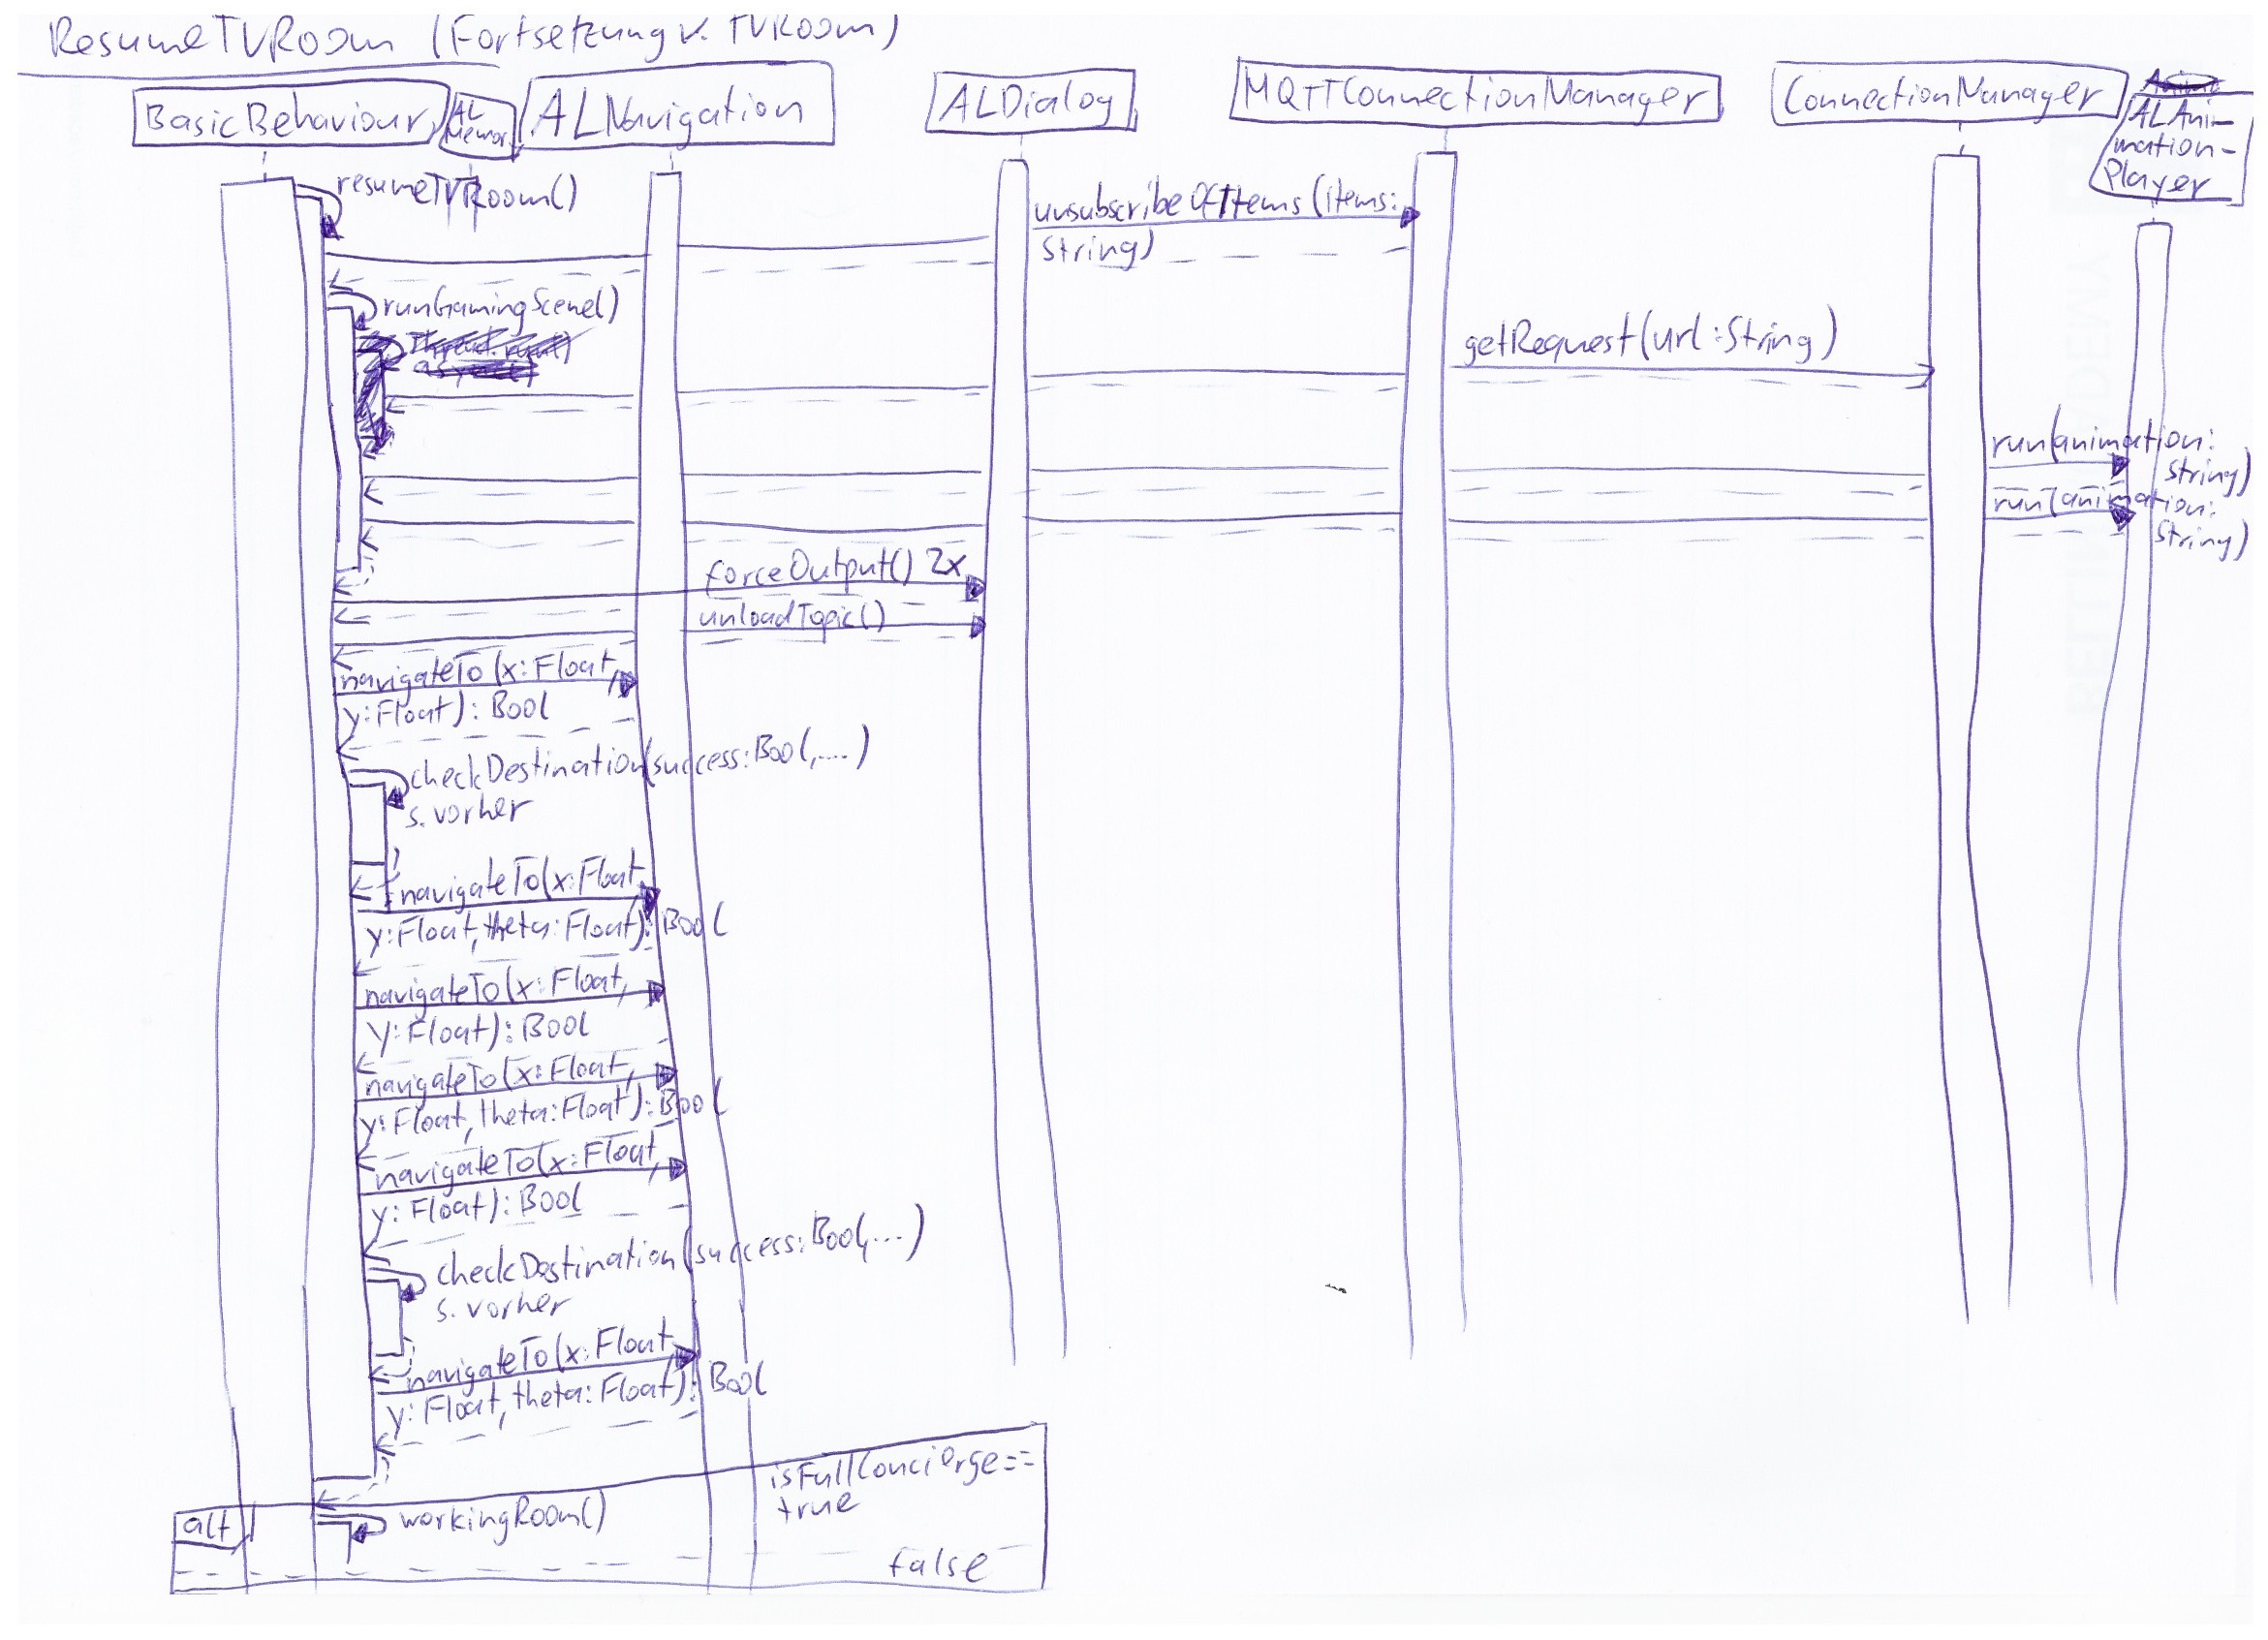 ResumeTVRoom (Fortsetzung v. TVRoom)
BasicBehaviour
AL
Memor.
ALNavigation
ALDialog
MQTTConnectionManager
ConnectionManager
ALAni-
mation-
Player
resumeTVRoom()
unsubscribeOfItems(items:
String)
runGamingScene()
getRequest(url:String)
run(animation:
String)
run(animation:
String)
forceOutput() 2x
unloadTopic()
navigateTo(x:Float,
y:Float):Bool
checkDestination(success:Bool,....)
s.vorher
navigateTo(x:Float,
y:Float,theta:Float):Bool
navigateTo(x:Float,
y:Float):Bool
navigateTo(x:Float,
y:Float,theta:Float):Bool
navigateTo(x:Float,
y:Float):Bool
checkDestination(success:Bool,...)
s.vorher
navigateTo(x:Float
y:Float,theta:Float):Bool
isFullConcierge==
true
alt
workingRoom()
false